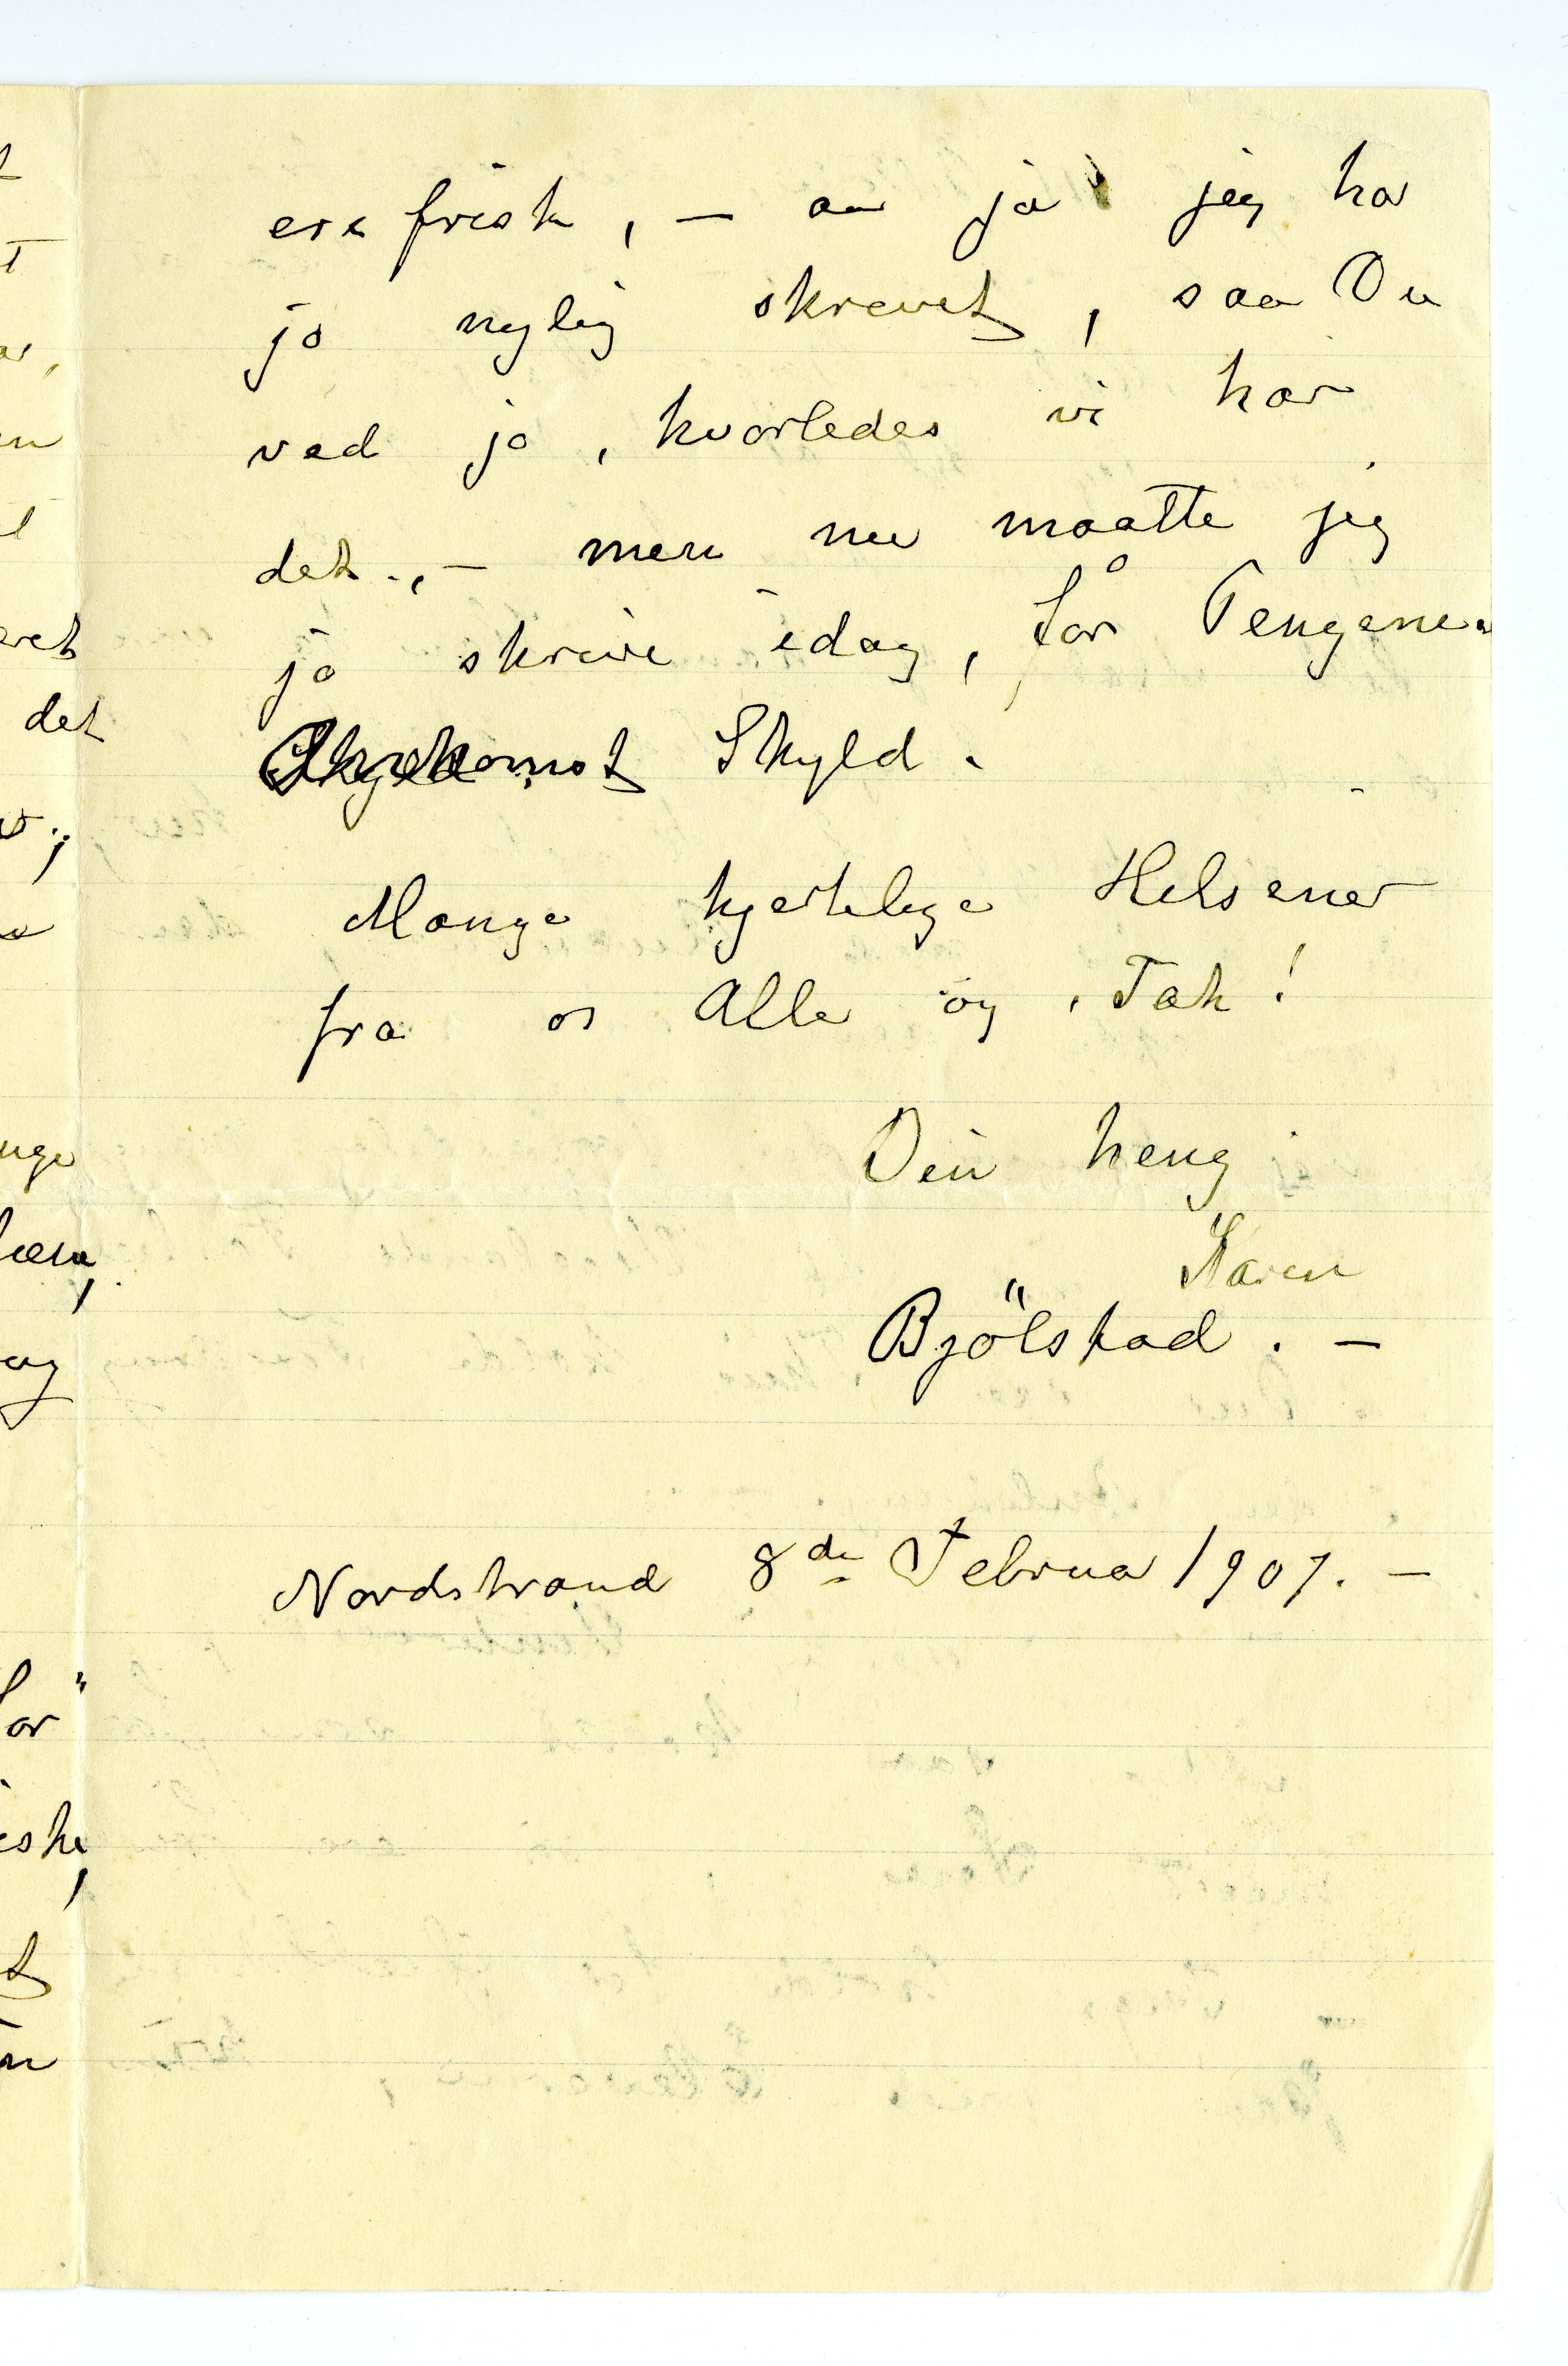 ere frisk, – aa ja jeg ha
jo nylig skrevet, saa Du
ved jo, hvorledes vi har
det., – men nu maatte jeg
jo skrive idag, for Pengenes
Skyld.
Mange hjertelige Helsener
fra os Alle og, Tak!
Din heng
Karen
Bjölstad. –
Nordstrand 8de Februa 1907. –
det